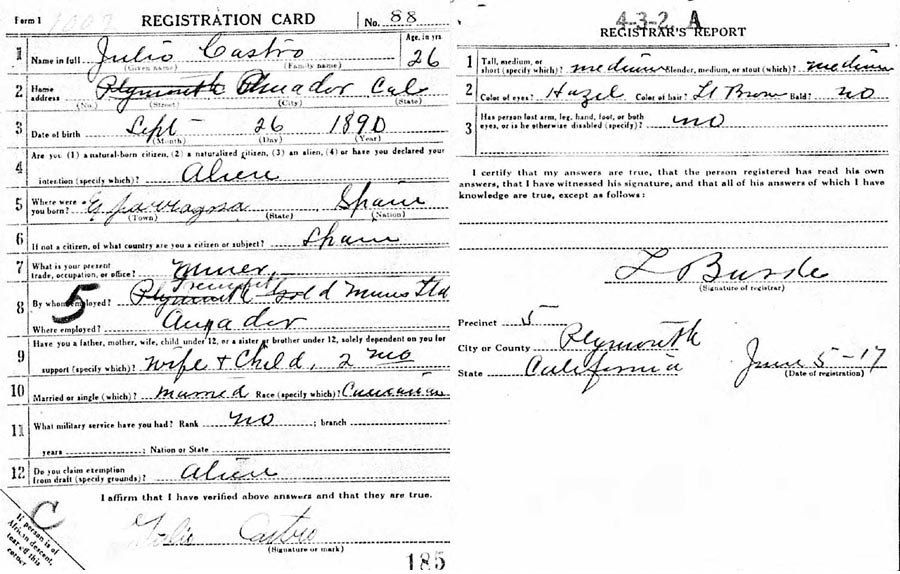 Form 1
REGISTRATION CARD No. 88
1 Name in full Julio Castro Age, in yrs. 26
(Given name) (Family name)
2 Home address Plymouth Amador Cal
(No.) (Street) (City) (State)
3 Date of birth Sept 26 1890
(Month) (Day) (Year)
4 Are you (1) a natural-born citizen, (2) a naturalized citizen, (3) an alien, (4) or have you declared your
intention (specify which)? Alien
5 Where were you born? Spain
(Town) (State) (Nation)
6 If not a citizen, of what country are you a citizen or subject? Spain
7 What is your present trade, occupation, or office? Miner
8 By whom employed? Plymouth Gold Mines Ltd
5
Where employed? Amador
9 Have you a father, mother, wife, child under 12, or a sister or brother under 12, solely dependent on you for
support (specify which)? Wife + Child, 2 mo
10 Married or single (which)? Married Race (specify which)? Caucasian
11 What military service have you had? Rank no ; branch
years ; Nation or State
12 Do you claim exemption from draft (specify grounds)? Alien
I affirm that I have verified above answers and that they are true.
C
If person is of
African descent,
tear off this
corner
Julio Castro
(Signature or mark)
185
4-3-2. A
REGISTRAR'S REPORT
1 Tall, medium, or short (specify which)? medium Slender, medium, or stout (which)? medium
2 Color of eyes? Hazel Color of hair? Lt Brown Bald? no
3 Has person lost arm, leg, hand, foot, or both eyes, or is he otherwise disabled (specify)? no
I certify that my answers are true, that the person registered has read his own
answers, that I have witnessed his signature, and that all of his answers of which I have
knowledge are true, except as follows:
(Signature of registrar)
Precinct 5
City or County Plymouth
State California
June 5-17
(Date of registration)